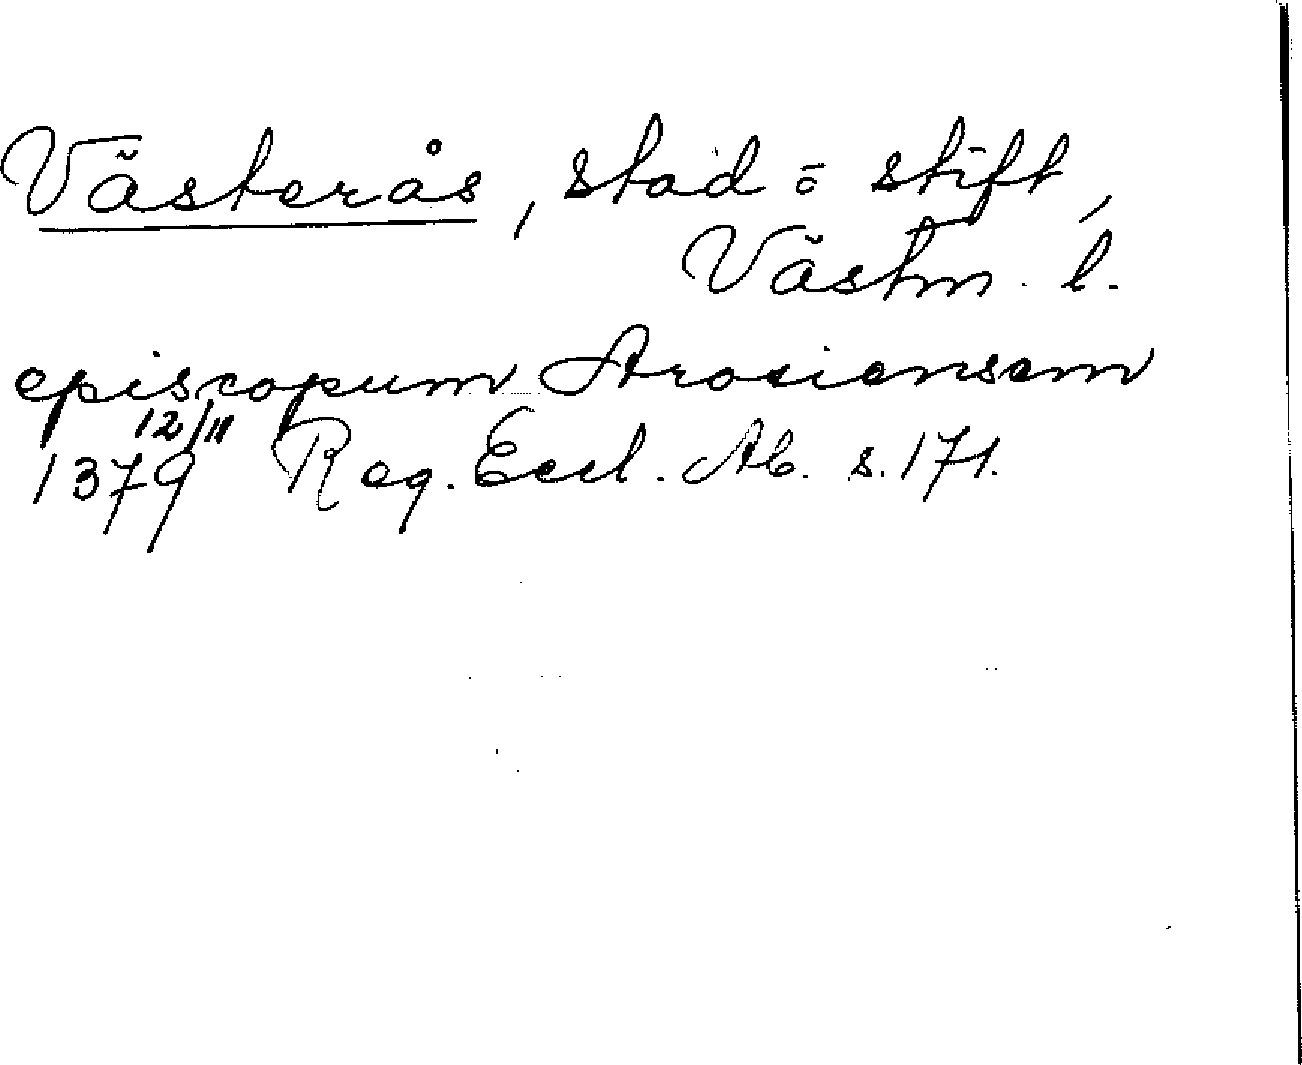 Västerås, stad ō stift,
Västm. l.
episcopum Arosiensem
12/11
1379 Reg. Eccl. Ab. s. 171.